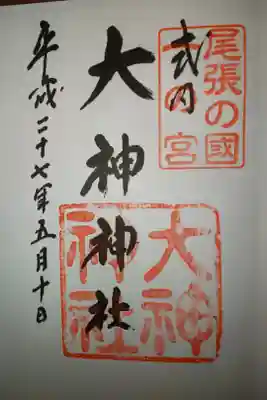 尾張の國
一之宮
式内
大神神社
大神
神社
平成二十七年五月十日